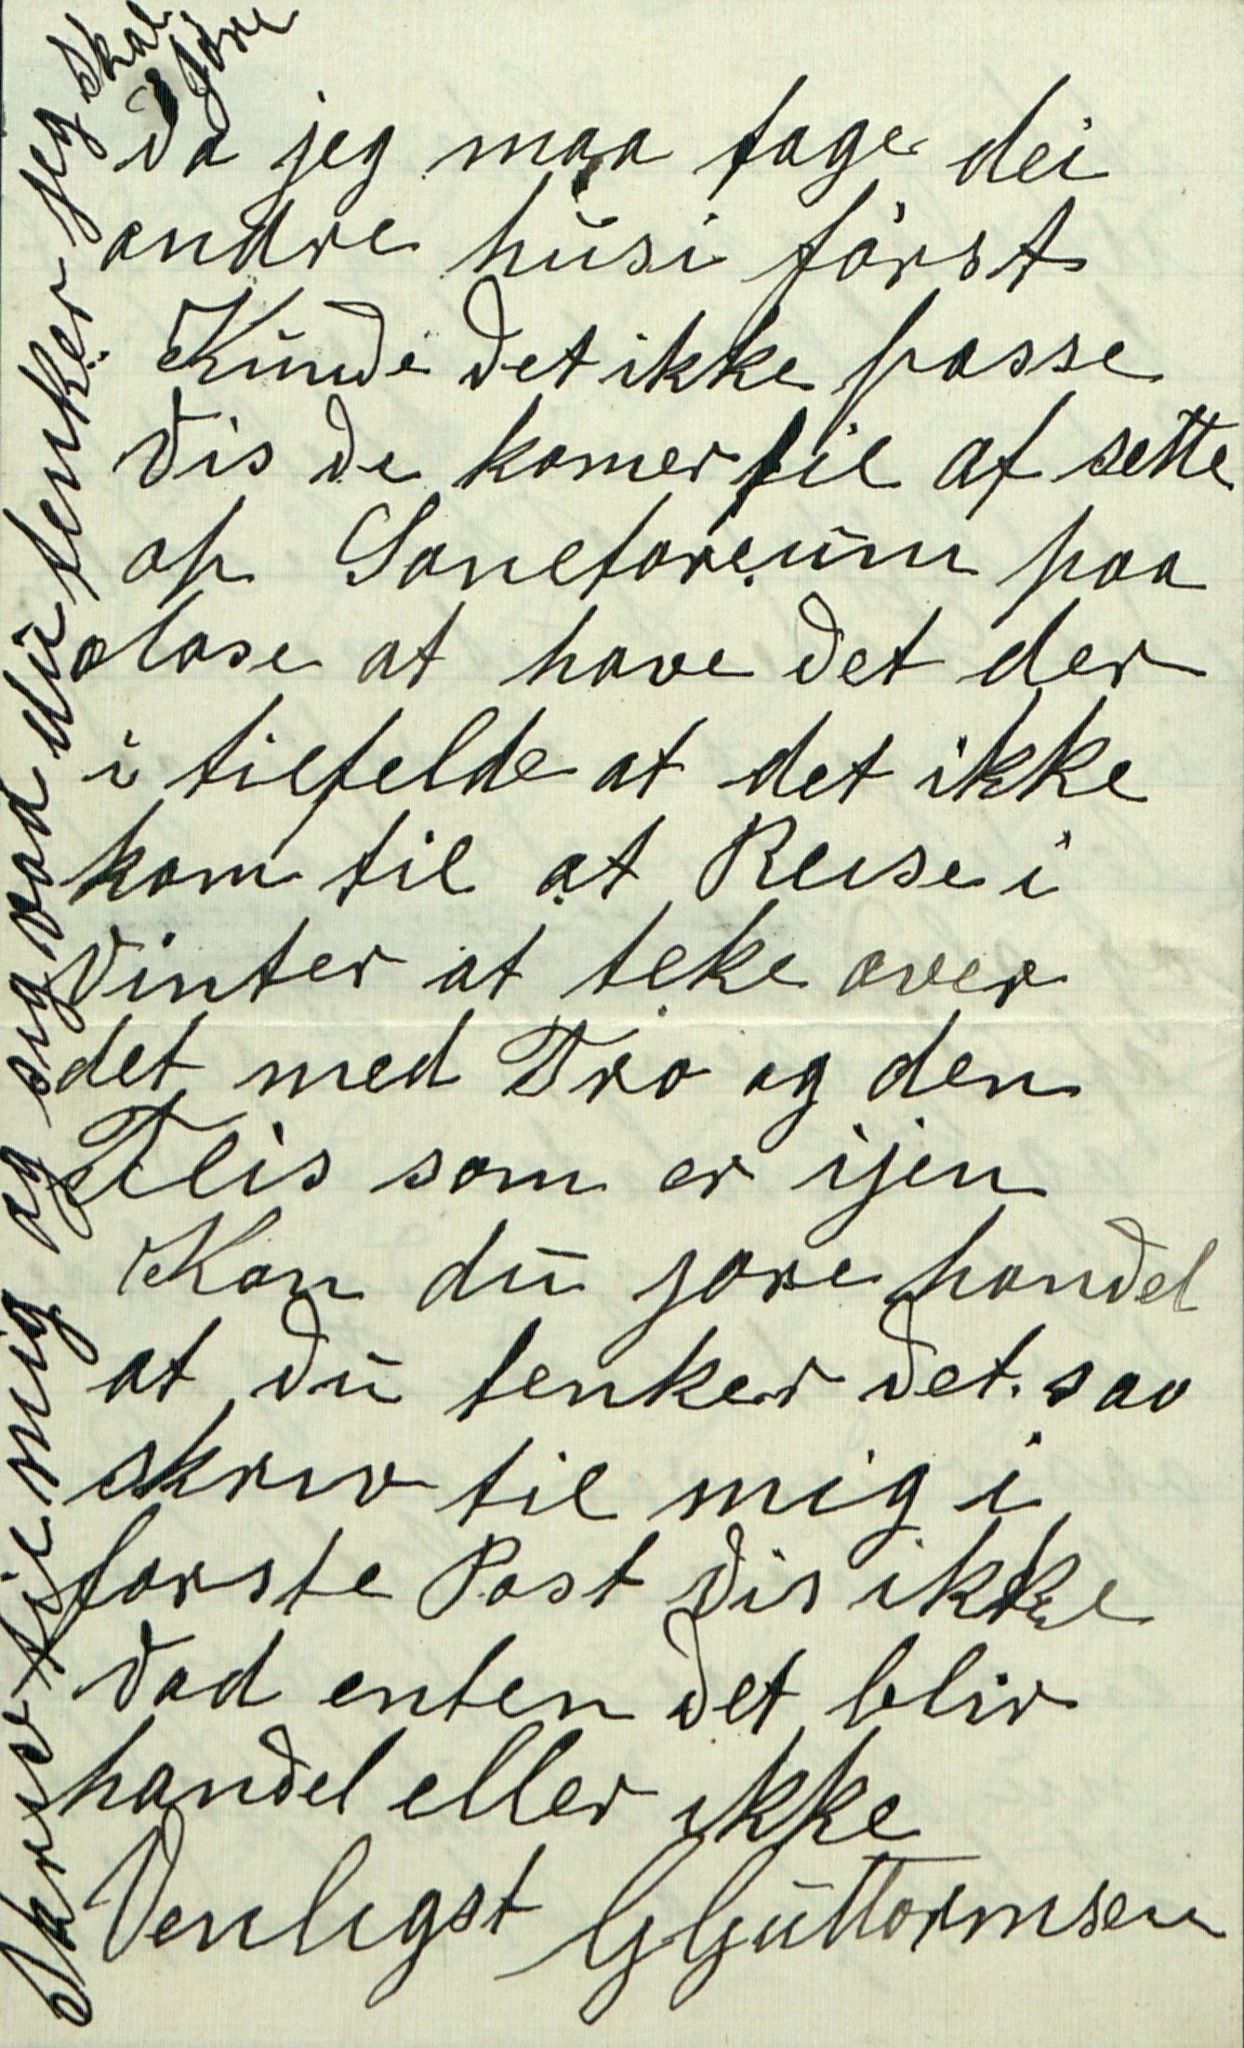 da jeg maa tage dei
andre husi først
Kunde det ikke passe
vis de komer til at sette
op Sanetoreum paa
at have det der
i tilfelde at det ikke
kom til at Reise i
vinter at teke over
det med Tro og den
Flis som er ijen
Kan du jøre handel
at du tenker det. saa
skriv til mig i
første Post vis ikke
vad enten det blir
handel eller ikke
Venligst G Guttormsen
Skriv til mig og sig vad du tenker jeg skal
jøre